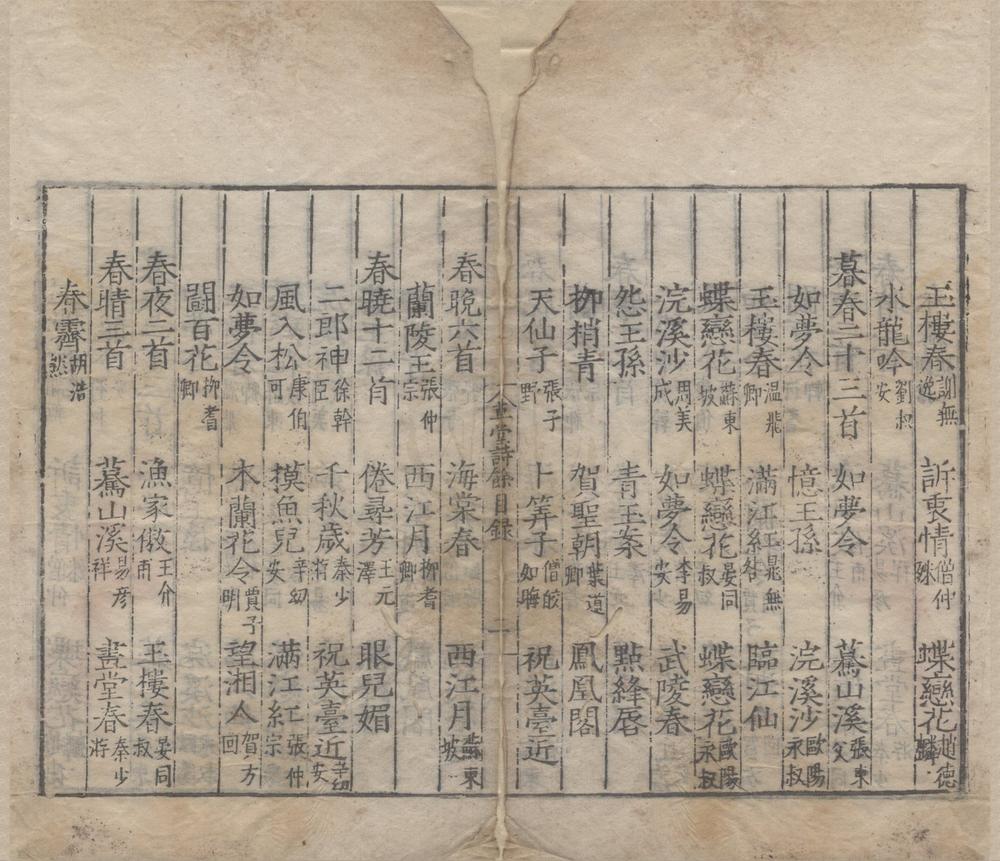 玉樓春 謝無逸 訴衷情 僧仲殊 蝶戀花 趙德麟
水龍吟 劉叔安
暮春二十三首 如夢令 驀山溪 張東父
如夢令 憶王孫 浣溪沙 歐陽永叔
玉樓春 温飛卿 滿江紅 晁無咎 臨江仙
蝶戀花 蘇東坡 蝶戀花 晏同叔 蝶戀花 歐陽永叔
浣溪沙 周美成 如夢令 李易安 武陵春
怨王孫 青玉案 點絳唇
柳梢青 賀聖朝 葉道卿 鳳凰閣
天仙子 張子野 卜筭子 僧皎如晦 祝英臺近
草堂詩餘目録 二
春晚六首 海棠春 西江月 蘇東坡
蘭陵王 張仲宗 西江月 柳耆卿
春曉十二首 倦尋芳 王元澤 眼兒媚
二郎神 徐幹臣 千秋歲 秦少游 祝英臺近 辛幼安
風入松 康伯可 摸魚兒 辛幼安 滿江紅 張仲宗
如夢令 木蘭花令 賈子明 望湘人 賀方回
鬪百花 柳耆卿
春夜二首 漁家傲 王介甫 玉樓春 晏同叔
春晴三首 驀山溪 易彥祥 畫堂春 秦少游
春霽 胡浩然